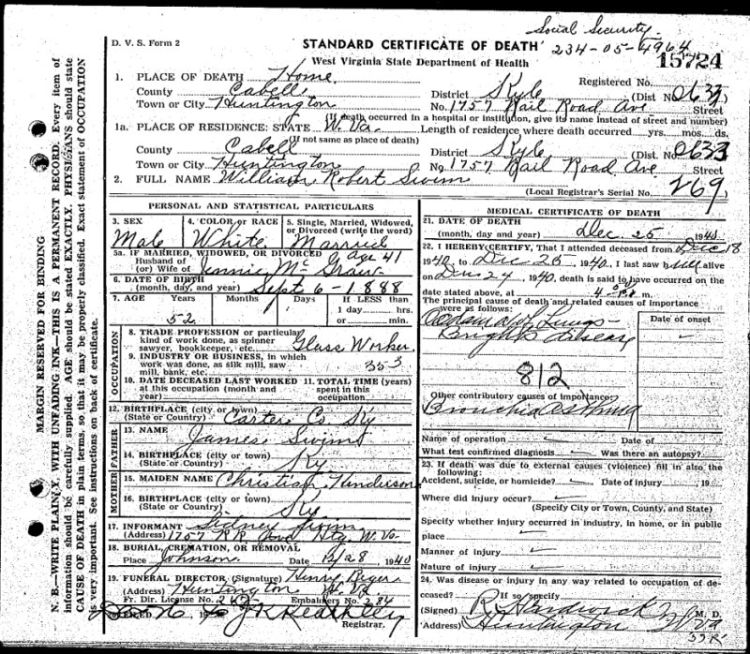 Social Security
234-05-4964
D. V. S. Form 2
STANDARD CERTIFICATE OF DEATH
15724
West Virginia State Department of Health
1. PLACE OF DEATH Home Registered No.
County Cabell District Kyle (Dist No. 0633)
Town or City Huntington No. 1757 Rail Road Ave Street
(If death occurred in a hospital or institution, give its name instead of street and number)
1a. PLACE OF RESIDENCE: STATE W. Va. Length of residence where death occurred yrs. mos. ds.
(If not same as place of death)
County Cabell District Kyle (Dist. No. 0633
Town or City Huntington No. 1757 Rail Road Ave Street
2. FULL NAME William Robert Swim (Local Registrar's Serial No. 269
PERSONAL AND STATISTICAL PARTICULARS
3. SEX Male
4. COLOR or RACE White
5. Single, Married, Widowed, or Divorced (write the word) Married
5a. IF MARRIED, WIDOWED, OR DIVORCED age 41
Husband of
(or) Wife of Jennie McGraw
6. DATE OF BIRTH
(month, day, and year) Sept 6-1888
7. AGE Years Months Days If LESS than
52 1 day hrs.
or min.
OCCUPATION
8. TRADE PROFESSION or particular
kind of work done, as spinner
sawyer, bookkeeper, etc. Glass Worker
9. INDUSTRY OR BUSINESS, in which
work was done, as silk mill, saw
mill, bank, etc. 353
10. DATE DECEASED LAST WORKED
at this occupation (month and
year)
11. TOTAL TIME (years)
spent in this
occupation
12. BIRTHPLACE (city or town)
(State or Country) Carter Co Ky
FATHER
13. NAME James Swim
14. BIRTHPLACE (city or town)
(State or Country) Ky
MOTHER
15. MAIDEN NAME Christian Henderson
16. BIRTHPLACE (city or town)
(State or Country) Ky
17. INFORMANT Sidney Swim
(Address) 1757 R.R. Ave Htg W. Va.
18. BURIAL, CREMATION, OR REMOVAL
Place Johnson Date 12/28 1940
19. FUNERAL DIRECTOR (Signature) Henry
(Address) Huntington W. Va
Fr. Dir. License No. Embalmers No.
Registrar.
MEDICAL CERTIFICATE OF DEATH
21. DATE OF DEATH
(month, day and year) Dec 25 1940
22. I HEREBY CERTIFY, That I attended deceased from Dec 18
1940, to Dec 25 1940. I last saw him alive
on Dec 24 1940, death is said to have occurred on the
date stated above, at m.
The principal cause of death and related causes of importance
were as follows: Date of onset
Oedema of Lungs
Brights disease
812
Other contributory causes of importance:
Bronchial Asthma
Name of operation Date of
What test confirmed diagnosis Was there an autopsy?
23. If death was due to external causes (violence) fill in also the
following:
Accident, suicide, or homicide? Date of injury 19
Where did injury occur?
(Specify City or Town, County, and State)
Specify whether injury occurred in industry, in home, or in public
place
Manner of injury
Nature of injury
24. Was disease or injury in any way related to occupation of de-
ceased? If so specify
(Signed) R. Hardwick M. D.
(Address) Huntington W Va
N. B.—WRITE PLAINLY, WITH UNFADING INK—THIS IS A PERMANENT RECORD. Every item of
information should be carefully supplied. AGE should be stated EXACTLY. PHYSICIANS should state
CAUSE OF DEATH in plain terms, so that it may be properly classified. Exact statement of OCCUPATION
is very important. See instructions on back of certificate.
MARGIN RESERVED FOR BINDING